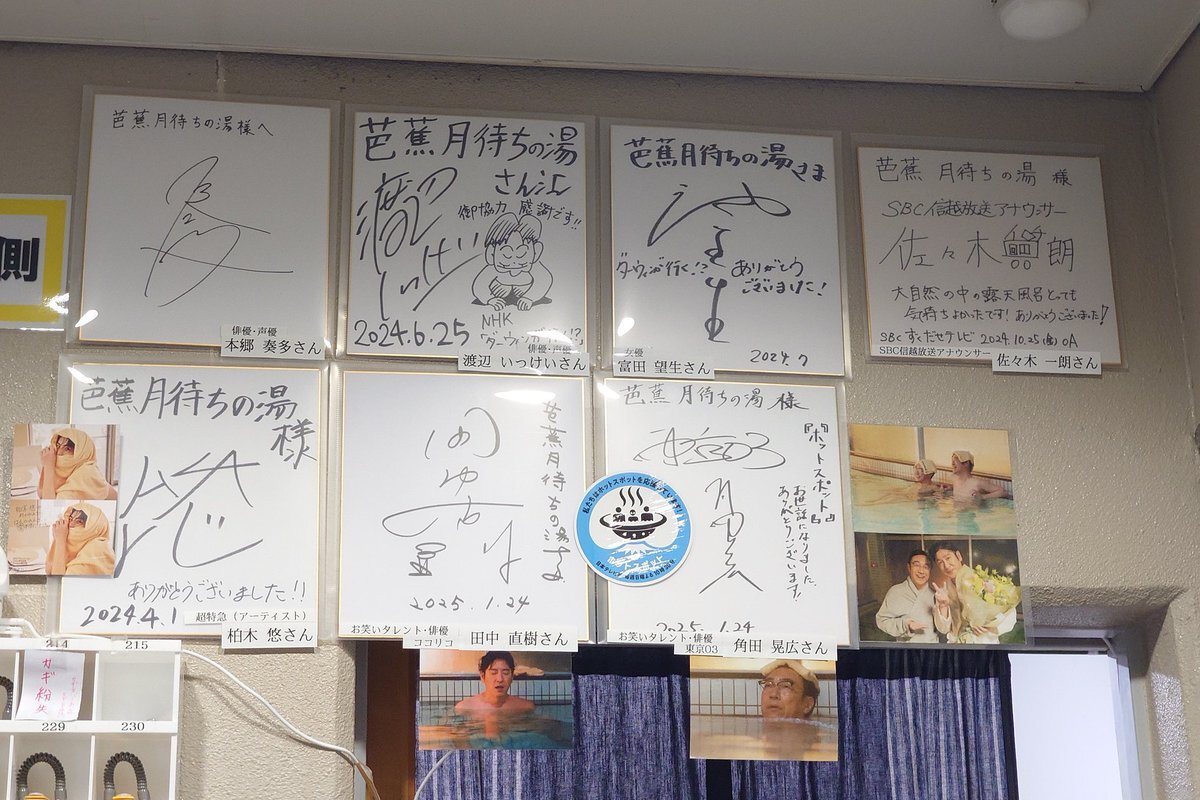 側
芭蕉月待ちの湯様へ
俳優・声優
本郷 奏多さん
芭蕉月待ちの湯
さん江
御協力 感謝です!!
いっけい
2024.6.25
NHK
俳優・声優
渡辺 いっけいさん
芭蕉月待ちの湯さま
ダーウィンが行く!?
ありがとう
ございました!
2024.7
女優
富田 望生さん
芭蕉 月待ちの湯 様
SBC信越放送アナウンサー
佐々木 朗
大自然の中の露天風呂とっても
気持ちよかったです! ありがとうございました!
SBC ずくだせテレビ 2024.10.25(金)OA
SBC信越放送アナウンサー
佐々木 一朗さん
芭蕉月待ちの湯
様
ありがとうございました!!
2024.4.1
超特急(アーティスト)
柏木 悠さん
芭蕉月待ちの湯さま
2025.1.24
お笑いタレント・俳優
ココリコ
田中 直樹さん
芭蕉 月待ちの湯 様
東京03
『ホットスポット』
お世話になりました。
ありがとうございます!
2025.1.24
私たちはホットスポットを応援しています!
お笑いタレント・俳優
東京03
角田 晃広さん
214
215
カギ紛失
229
230